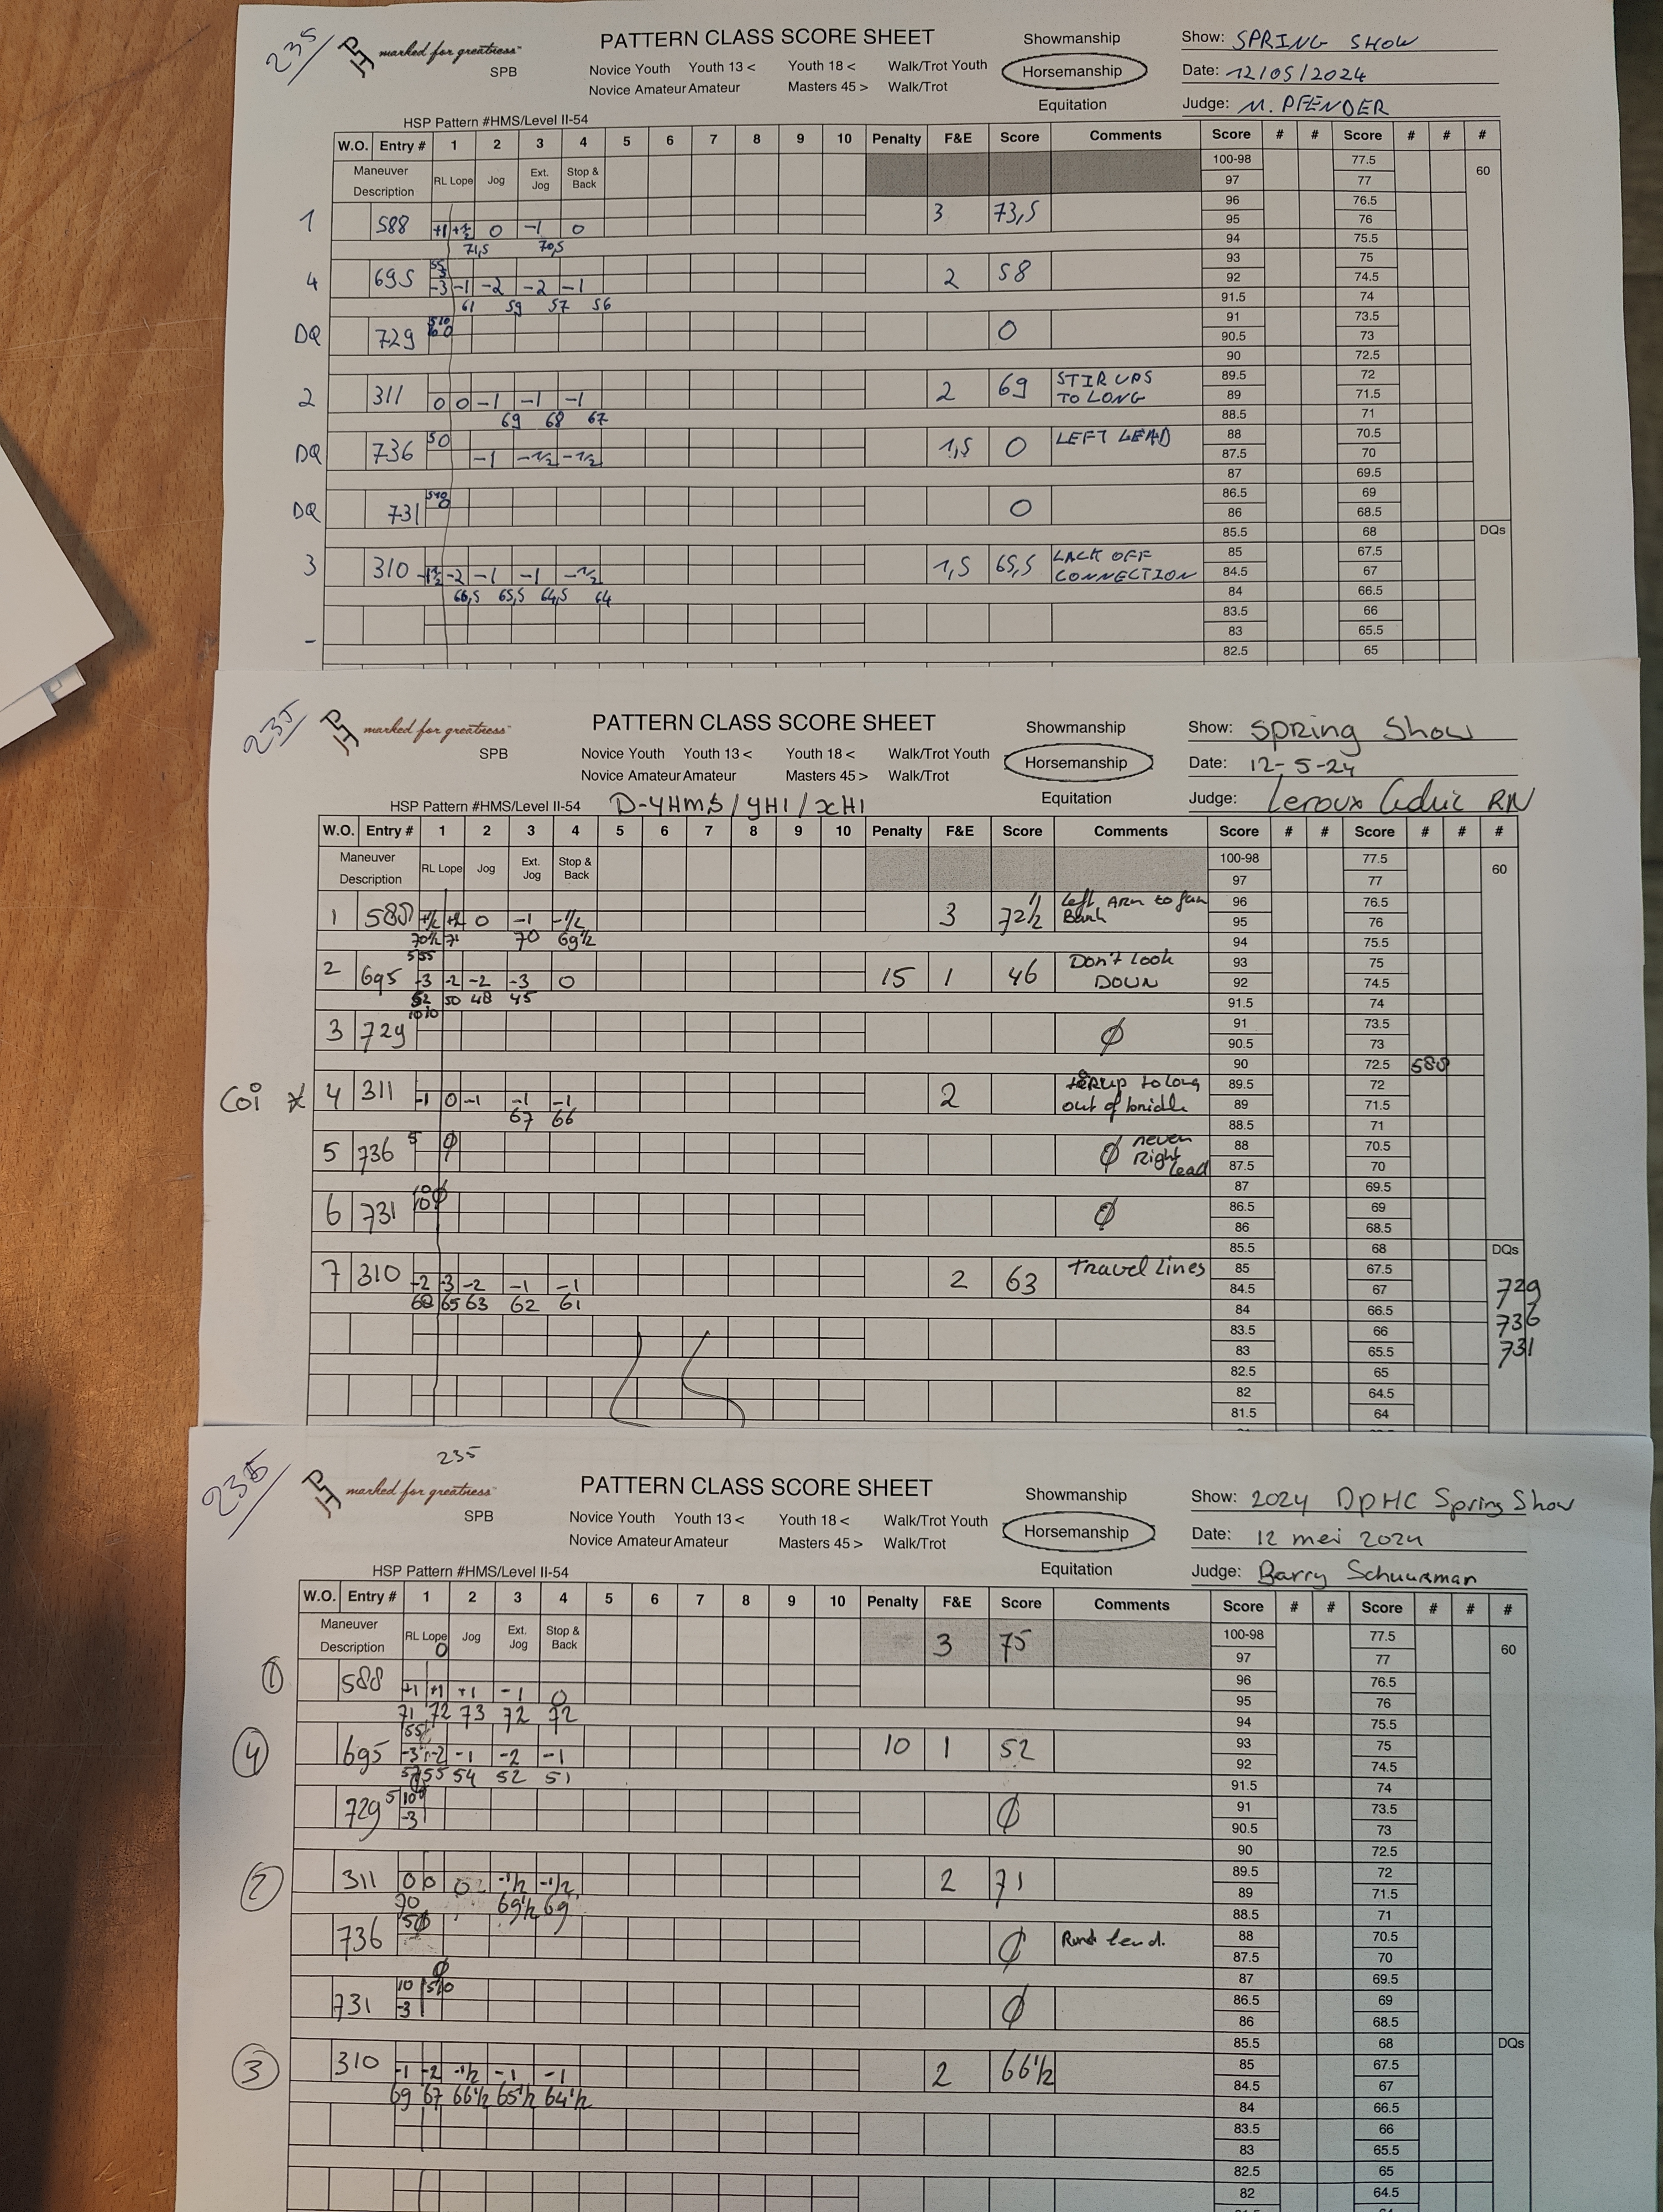 235
marked for greatness
SPB
PATTERN CLASS SCORE SHEET
Novice Youth Youth 13 < Youth 18 < Walk/Trot Youth
Novice Amateur Amateur Masters 45 > Walk/Trot
Showmanship
Horsemanship
Equitation
Show: SPRING SHOW
Date: 12/05/2024
Judge: M. PFENDER
HSP Pattern #HMS/Level II-54
W.O. Entry # 1 2 3 4 5 6 7 8 9 10 Penalty F&E Score Comments Score # # Score # # #
Maneuver Description RL Lope Jog Ext. Jog Stop & Back
1 588 +1 +½ 0 -1 0 3 73,5
71,5 70,5
4 695 -3 -1 -2 -2 -1 2 58
61 59 57 56
DQ 729 0
2 311 0 0 -1 -1 -1 2 69 STIRUPS TO LONG
69 68 67
DQ 736 50 -1 -½ -½ 1,5 0 LEFT LEAD
DQ 731 0
3 310 -1½ -2 -1 -1 -½ 1,5 65,5 LACK OFF CONNECTION
66,5 65,5 64,5 64
100-98 77.5 60
97 77
96 76.5
95 76
94 75.5
93 75
92 74.5
91.5 74
91 73.5
90.5 73
90 72.5
89.5 72
89 71.5
88.5 71
88 70.5
87.5 70
87 69.5
86.5 69
86 68.5
85.5 68 DQs
85 67.5
84.5 67
84 66.5
83.5 66
83 65.5
82.5 65
235
marked for greatness
SPB
PATTERN CLASS SCORE SHEET
Novice Youth Youth 13 < Youth 18 < Walk/Trot Youth
Novice Amateur Amateur Masters 45 > Walk/Trot
Showmanship
Horsemanship
Equitation
Show: Spring Show
Date: 12-5-24
Judge: Leroux Cedric RN
HSP Pattern #HMS/Level II-54 D-YHMS/YH1/XH1
W.O. Entry # 1 2 3 4 5 6 7 8 9 10 Penalty F&E Score Comments Score # # Score # # #
Maneuver Description RL Lope Jog Ext. Jog Stop & Back
1 588 +½ +½ 0 -1 -1/2 3 72½ left Arm to far Back
70½ 71 70 69½
2 695 555 -3 -2 -2 -3 0 15 1 46 Don't look DOWN
52 50 48 45
3 729 1010 Ø
Coi 4 311 -1 0 -1 -1 -1 2 to long out of bridle
67 66
5 736 5 Ø Ø never Right lead
6 731 10 10 Ø Ø
7 310 -2 -3 -2 -1 -1 2 63 travel lines
68 65 63 62 61
100-98 77.5 60
97 77
96 76.5
95 76
94 75.5
93 75
92 74.5
91.5 74
91 73.5
90.5 73
90 72.5 588
89.5 72
89 71.5
88.5 71
88 70.5
87.5 70
87 69.5
86.5 69
86 68.5
85.5 68 DQs
85 67.5 729
84.5 67
84 66.5 736
83.5 66
83 65.5 731
82.5 65
82 64.5
81.5 64
235
235
marked for greatness
SPB
PATTERN CLASS SCORE SHEET
Novice Youth Youth 13 < Youth 18 < Walk/Trot Youth
Novice Amateur Amateur Masters 45 > Walk/Trot
Showmanship
Horsemanship
Equitation
Show: 2024 DpHC Spring Show
Date: 12 mei 2024
Judge: Barry Schuurman
HSP Pattern #HMS/Level II-54
W.O. Entry # 1 2 3 4 5 6 7 8 9 10 Penalty F&E Score Comments Score # # Score # # #
Maneuver Description RL Lope Jog Ext. Jog Stop & Back 3 75
0
1 588 +1 +1 +1 -1 0
71 72 73 72 72
4 695 55 -3 -2 -1 -2 -1 10 1 52
57 55 54 52 51
729 5 10 -3 Ø
2 311 0 0 0 -1/2 -1/2 2 71
70 69½ 69
736 5Ø Ø
731 10 -3 Ø
3 310 -1 -2 -1/2 -1 -1 2 66½
69 67 66½ 65½ 64½
100-98 77.5 60
97 77
96 76.5
95 76
94 75.5
93 75
92 74.5
91.5 74
91 73.5
90.5 73
90 72.5
89.5 72
89 71.5
88.5 71
88 70.5
87.5 70
87 69.5
86.5 69
86 68.5
85.5 68 DQs
85 67.5
84.5 67
84 66.5
83.5 66
83 65.5
82.5 65
82 64.5